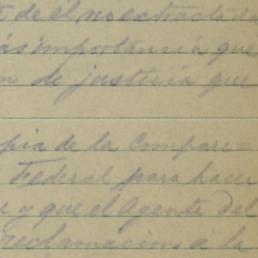 de él no extracto
más importancia que
de justicia que
copia de la Compare=
Federal para hacer
y que el Agente del
reclamación á la